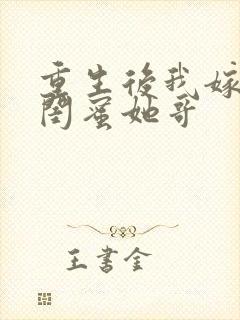 重生後我嫁
閨蜜她哥
王書金